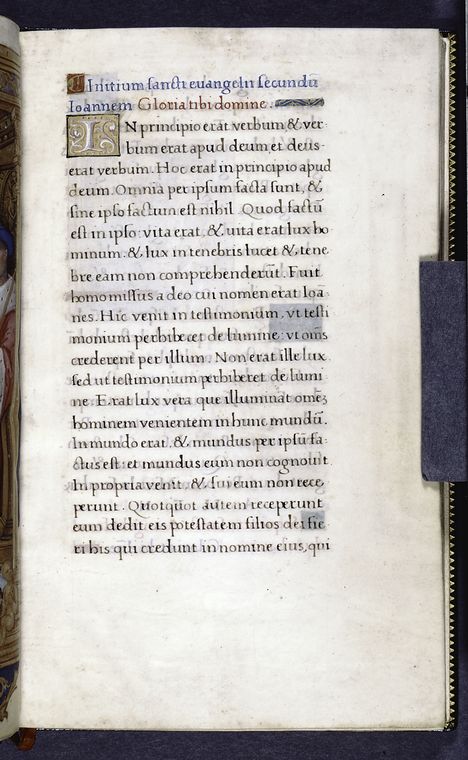 Initium sancti euangelii secundũ
Ioannem Gloria tibi domine.
IN principio erat verbum & ver
bum erat apud deum, et deus
erat verbum. Hoc erat in principio apud
deum. Omnia per ipsum facta sunt, &
sine ipso factum est nihil. Quod factũ
est in ipso vita erat, & uita erat lux ho
minum. & lux in tenebris lucet &, tene
bre eam non comprehenderũt. Fuit
homo missus a deo cui nomen erat Ioã
nes. Hic venit in testimonium, vt testi
monium perhibecet de lumine: vt om̃s
crederent per illum. Non erat ille lux
sed ut testimonium perhiberet de lumi
ne. Erat lux vera que illuminat omeʒ
hominem venientem in hunc mundũ.
In mundo erat, &, mundus per ipsũ fa-
ctus est: et mundus eum non cognouit
In propria venit, &, sui eum non rece
perunt. Quotquot autem receperunt
eum dedit eis potestatem filios dei fie
ri his qui credunt in nomine eius, qui